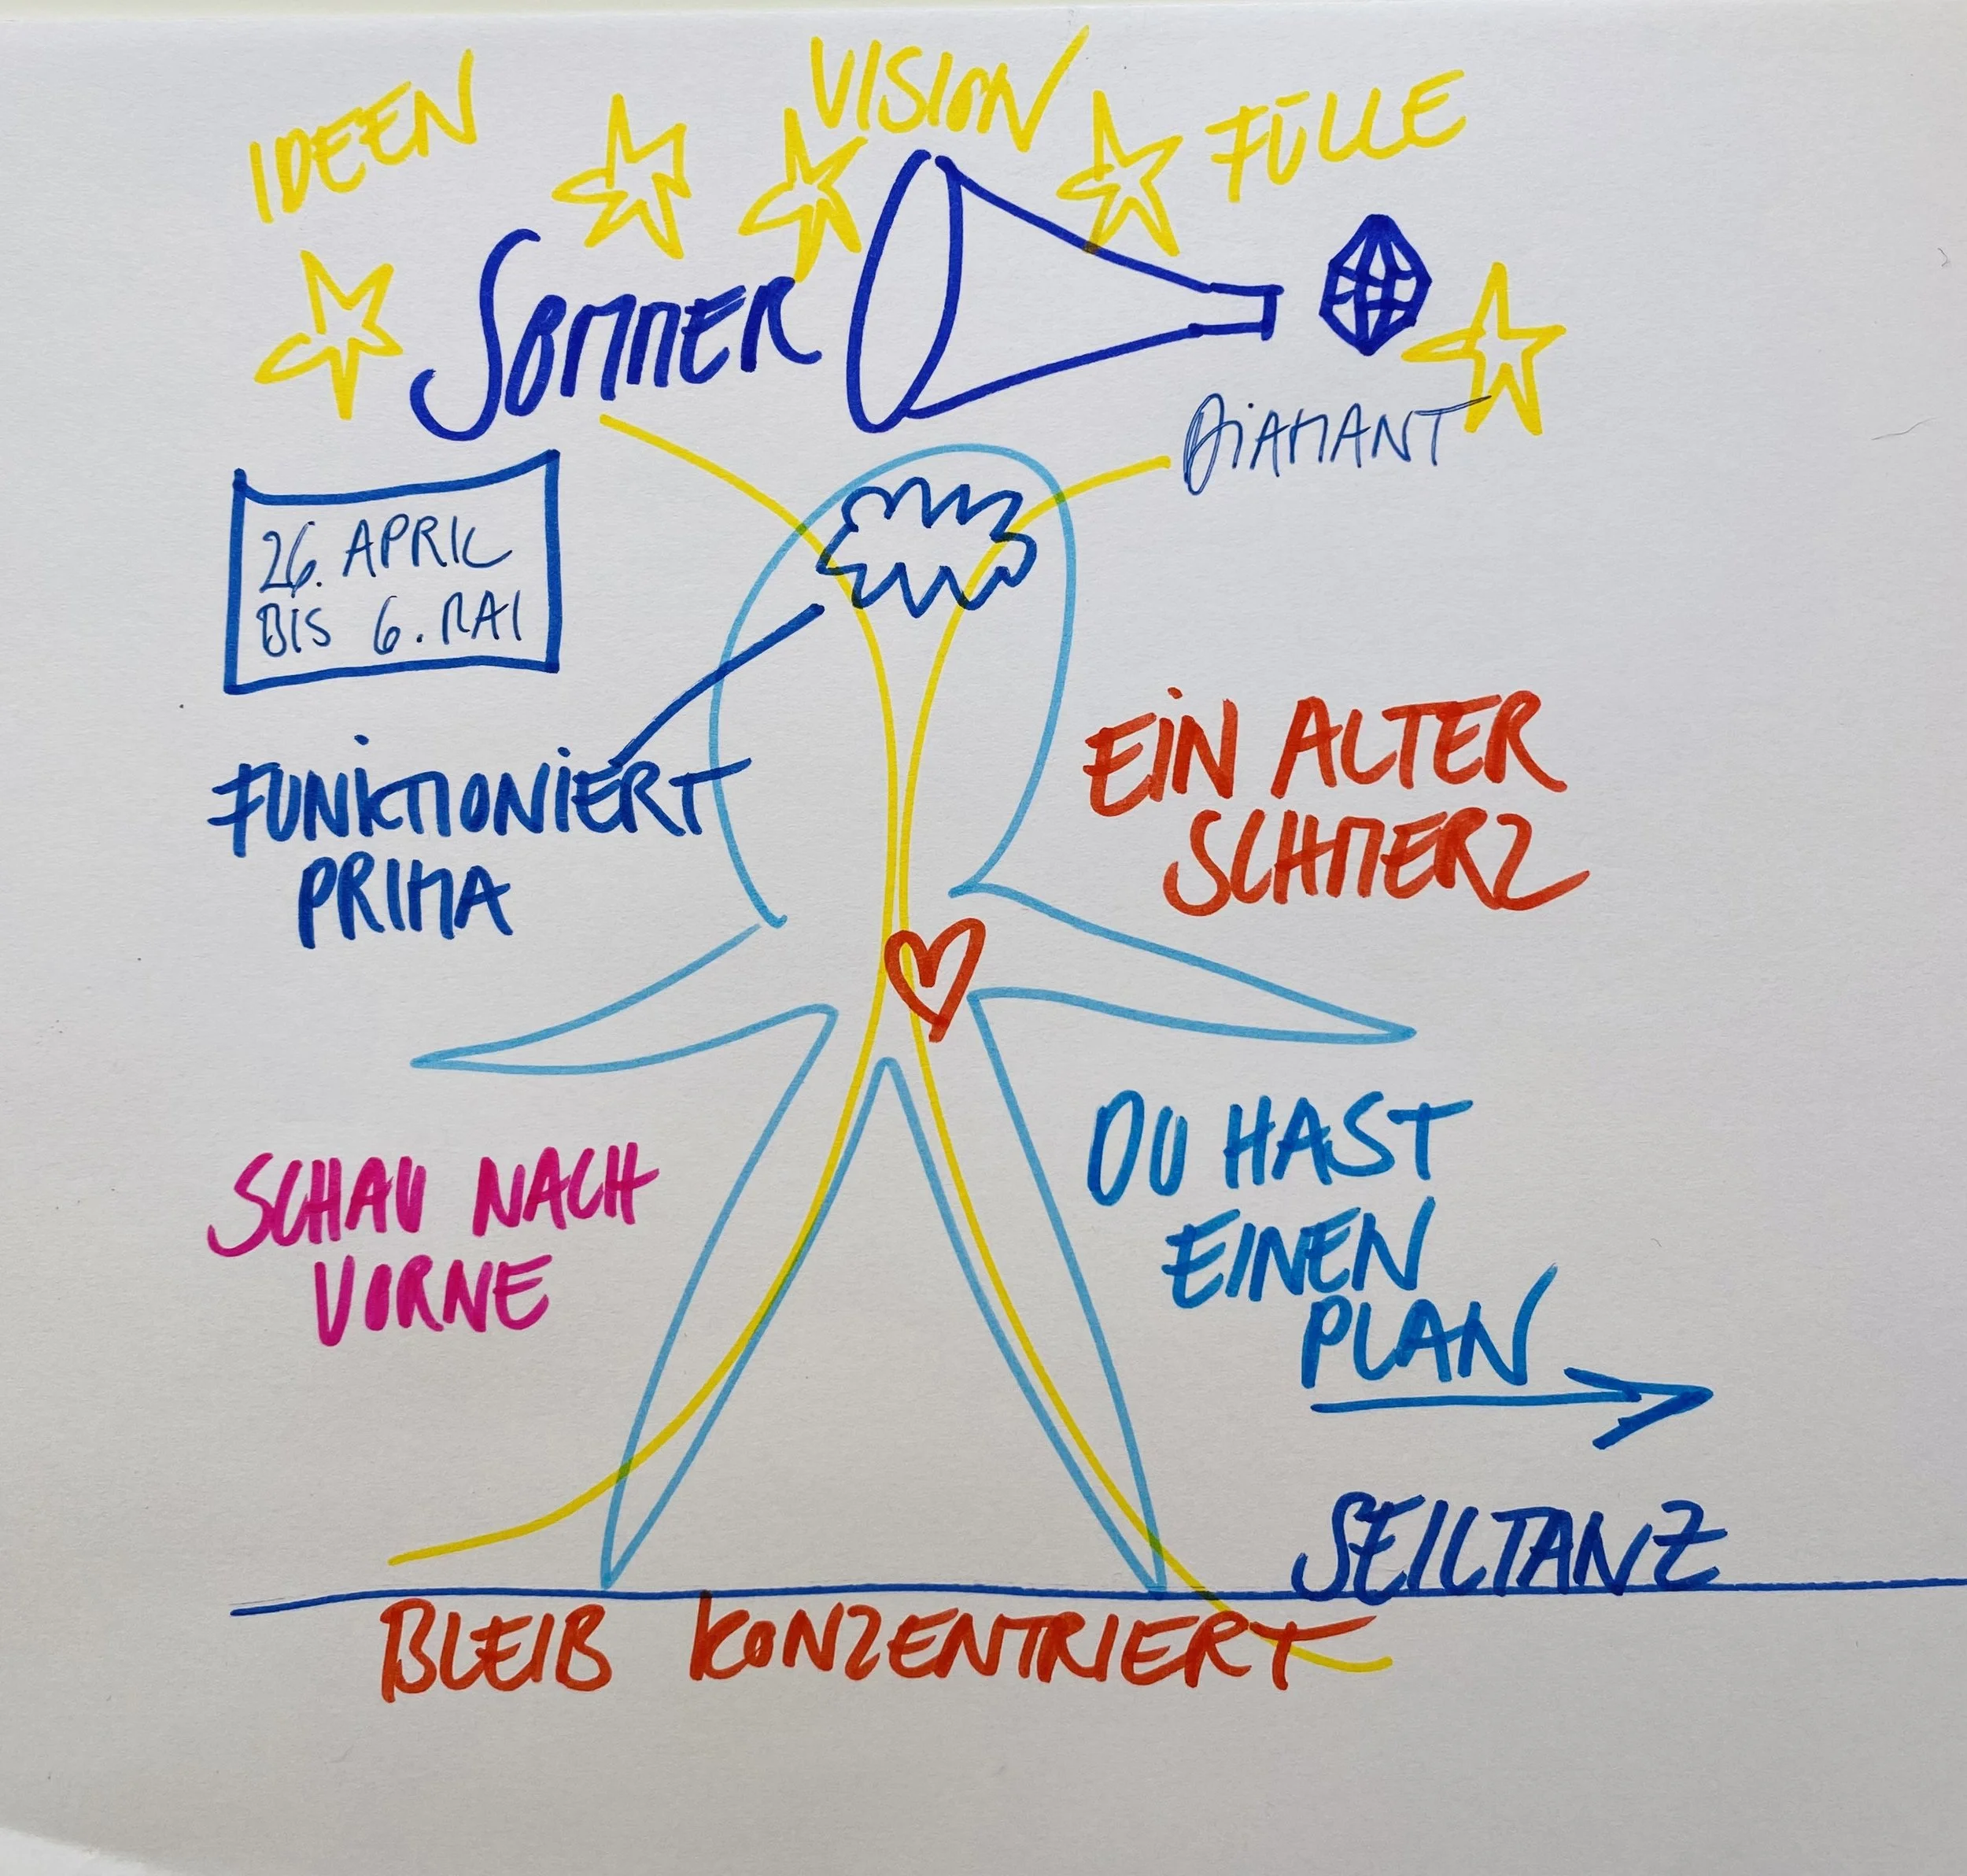 IDEEN
VISION
FÜLLE
SOMMER
DIAMANT
26. APRIL
BIS 6. MAI
FUNKTIONIERT
PRIMA
EIN ALTER
SCHMERZ
SCHAU NACH
VORNE
DU HAST
EINEN
PLAN
SEILTANZ
BLEIB KONZENTRIERT